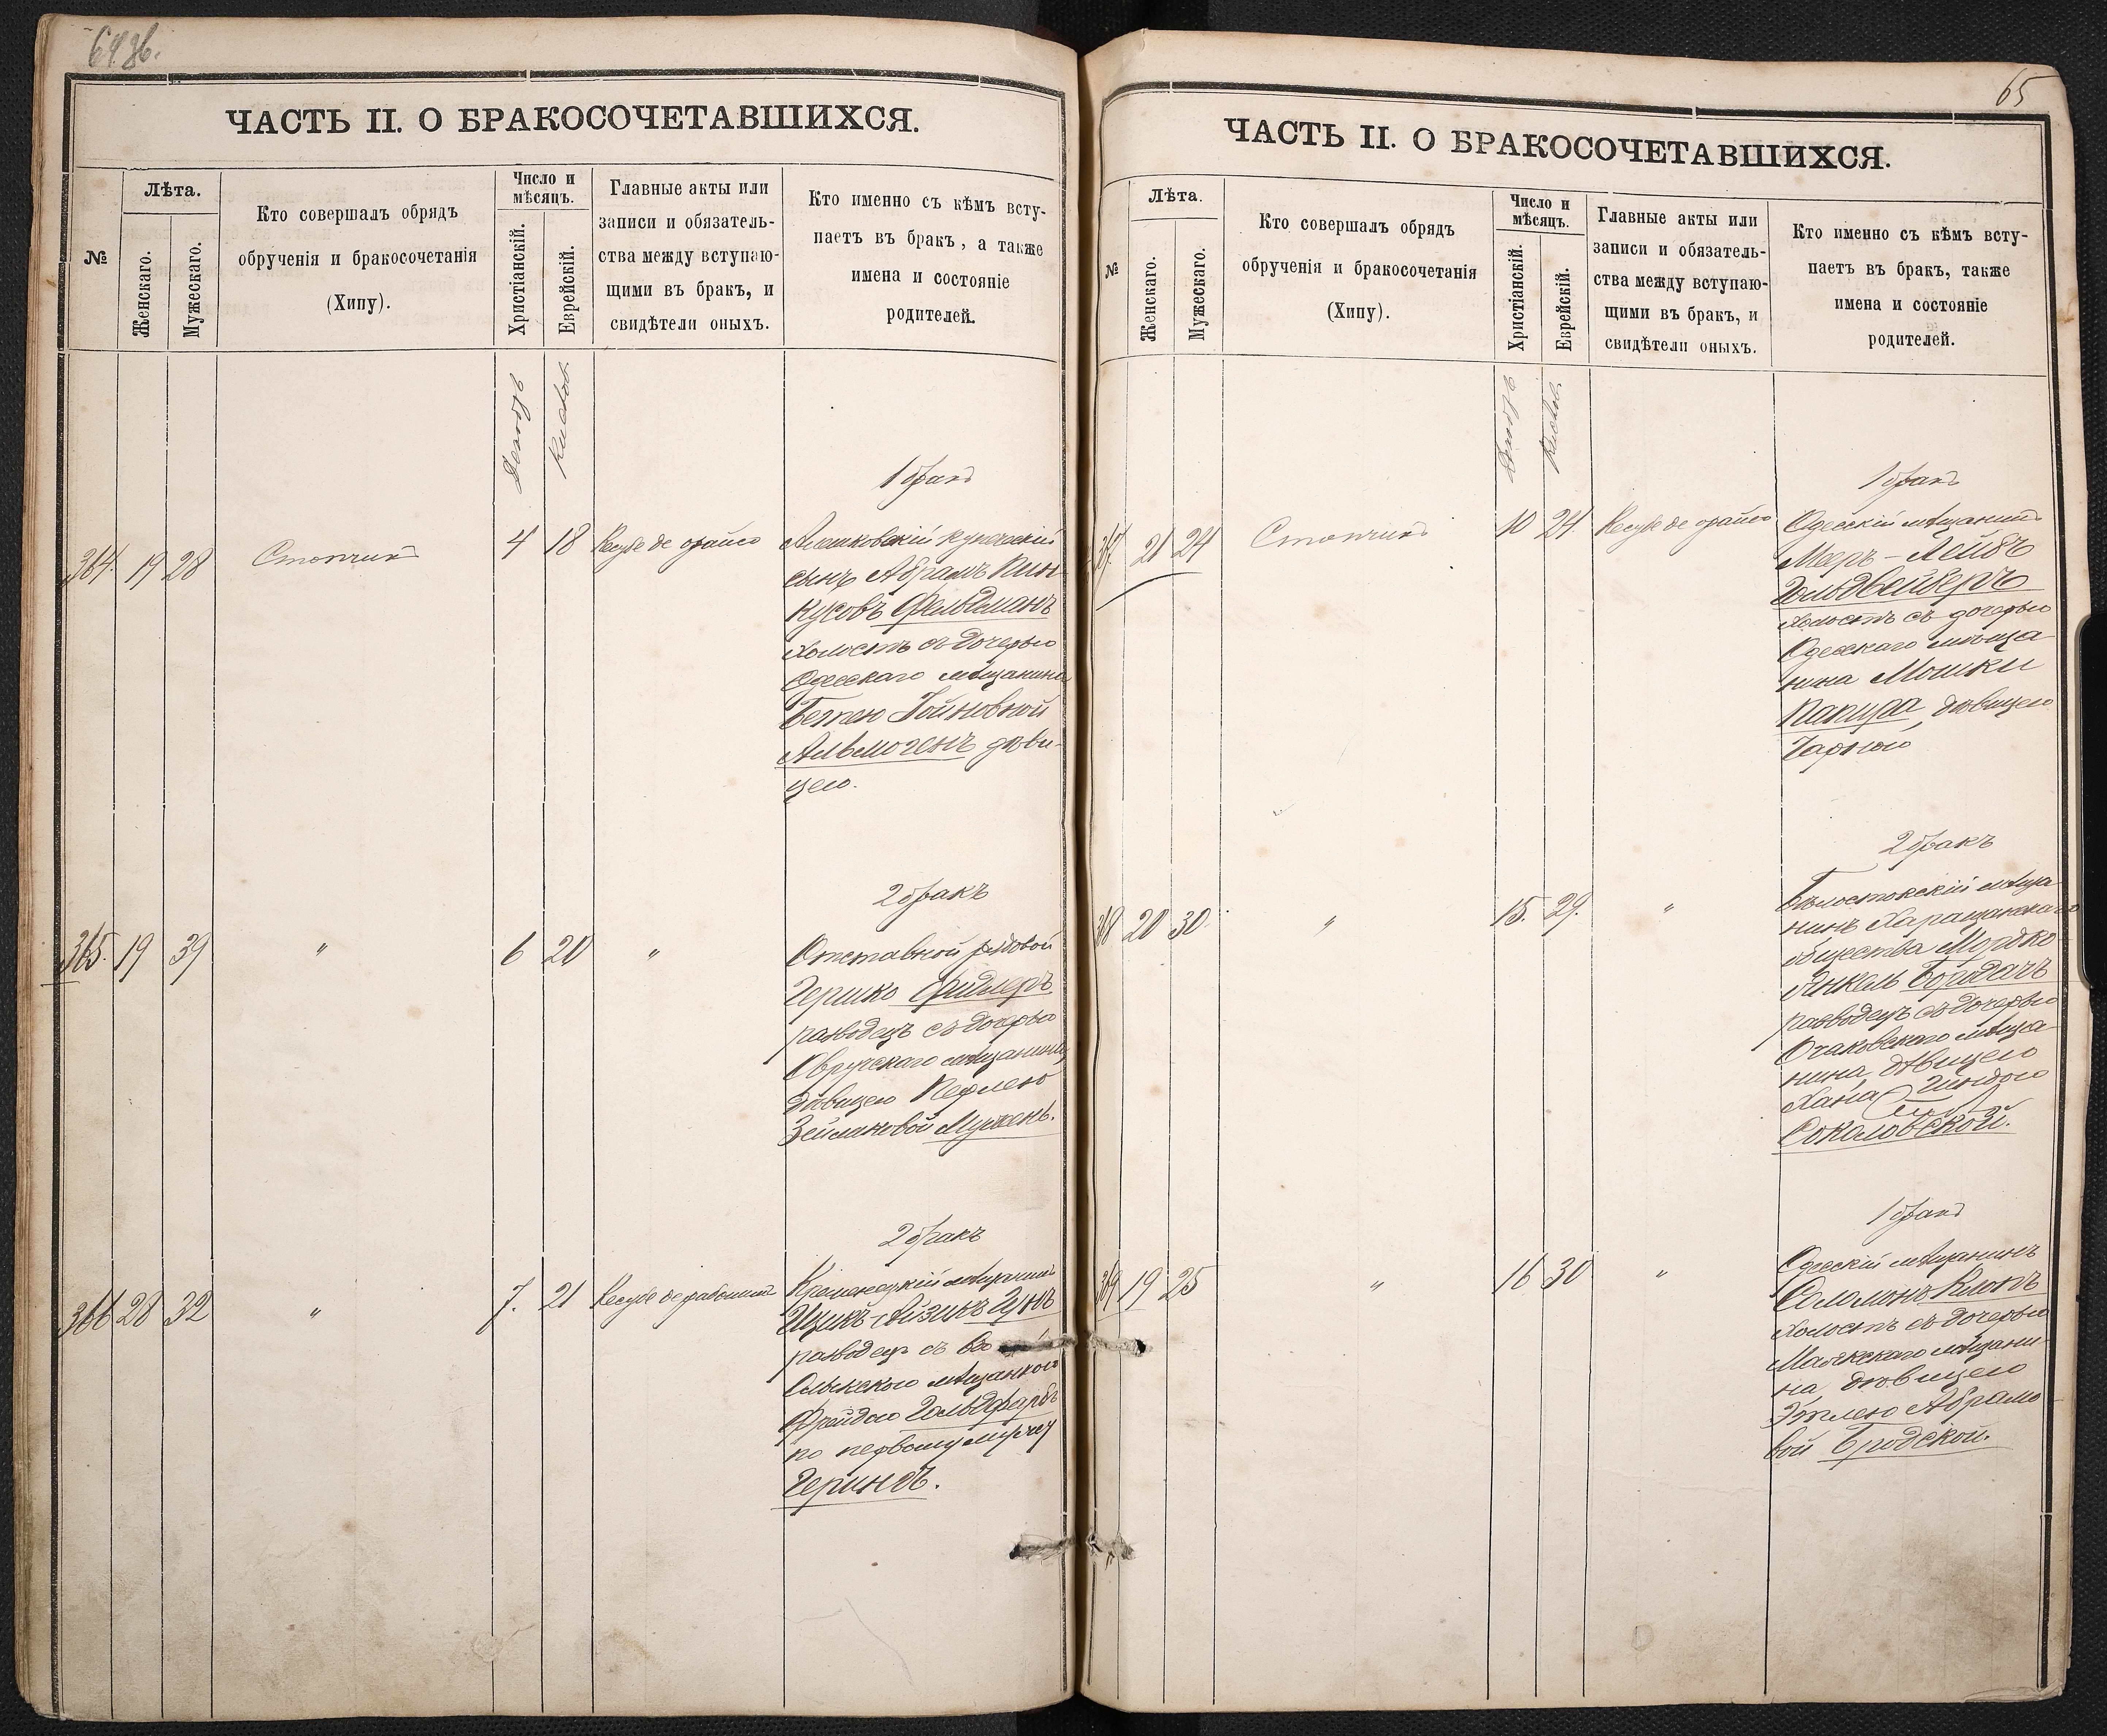 64 об.
ЧАСТЬ II. О БРАКОСОЧЕТАВШИХСЯ.
№
Лѣта.
Женскаго.
Мужескаго.
Кто совершалъ обрядъ
обрученія и бракосочетанія
(Хипу).
Число и
мѣсяцъ.
Христіанскій.
Еврейскій.
Главные акты или
записи и обязатель-
ства между вступаю-
щими въ бракъ, и
свидѣтели оныхъ.
Кто именно съ кѣмъ всту-
паетъ въ бракъ, а также
имена и состояніе
родителей.
Декабрь
Кислов.
1 бракъ
364. 19 28 Стопчикъ 4 18 Кесубе де орайсо
Алешковскій купеческій
сынъ Абрамъ Пин-
кусовъ Фельдманъ
холостъ съ дочерью
Одесскаго мѣщанина
Бетею Іойновной
Альмогенъ дѣви-
цею.
2 бракъ
365. 19 39 " 6 20 "
Отставной рядовой
Гершко Фридлеръ
разводецъ съ дочерью
Овручскаго мѣщанина
дѣвицею Перлею
Зейликовой
2 бракъ
366 28 32 " 7. 21 Кесубе де рабонинъ
Кременецкій мѣщанинъ
Ицикъ-Айзикъ
разводецъ съ
мѣщанкою
Фрейдою Гольдфарбъ
по первому мужу
65
ЧАСТЬ II. О БРАКОСОЧЕТАВШИХСЯ.
№
Лѣта.
Женскаго.
Мужескаго.
Кто совершалъ обрядъ
обрученія и бракосочетанія
(Хипу).
Число и
мѣсяцъ.
Христіанскій.
Еврейскій.
Главные акты или
записи и обязатель-
ства между вступаю-
щими въ бракъ, и
свидѣтели оныхъ.
Кто именно съ кѣмъ всту-
паетъ въ бракъ, также
имена и состояніе
родителей.
Декабрь
Кислов.
1 бракъ
367. 21 24 Стопчикъ 10 24 Кесубе де орайсо
Одесскій мѣщанинъ
Меръ-Лейбъ
Гольдвейберъ
холостъ съ дочерью
Одесскаго мѣща-
нина Мошки
дѣвицею
Чарною
2 бракъ
368 20 30. " 15. 29. "
Бѣлостокскій мѣща-
нинъ
общества Мордко
Янкель Бородачъ
разводецъ съ дочерью
Очаковскаго мѣща-
нина дѣвицею
Хана Гиндою
Соколовской.
1 бракъ
369 19 25 " 16 30 "
Одесскій мѣщанинъ
Соломонъ
холостъ съ дочерью
Маякскаго мѣщани-
на, дѣвицею
Этлею Абрамо-
вой Бродской.